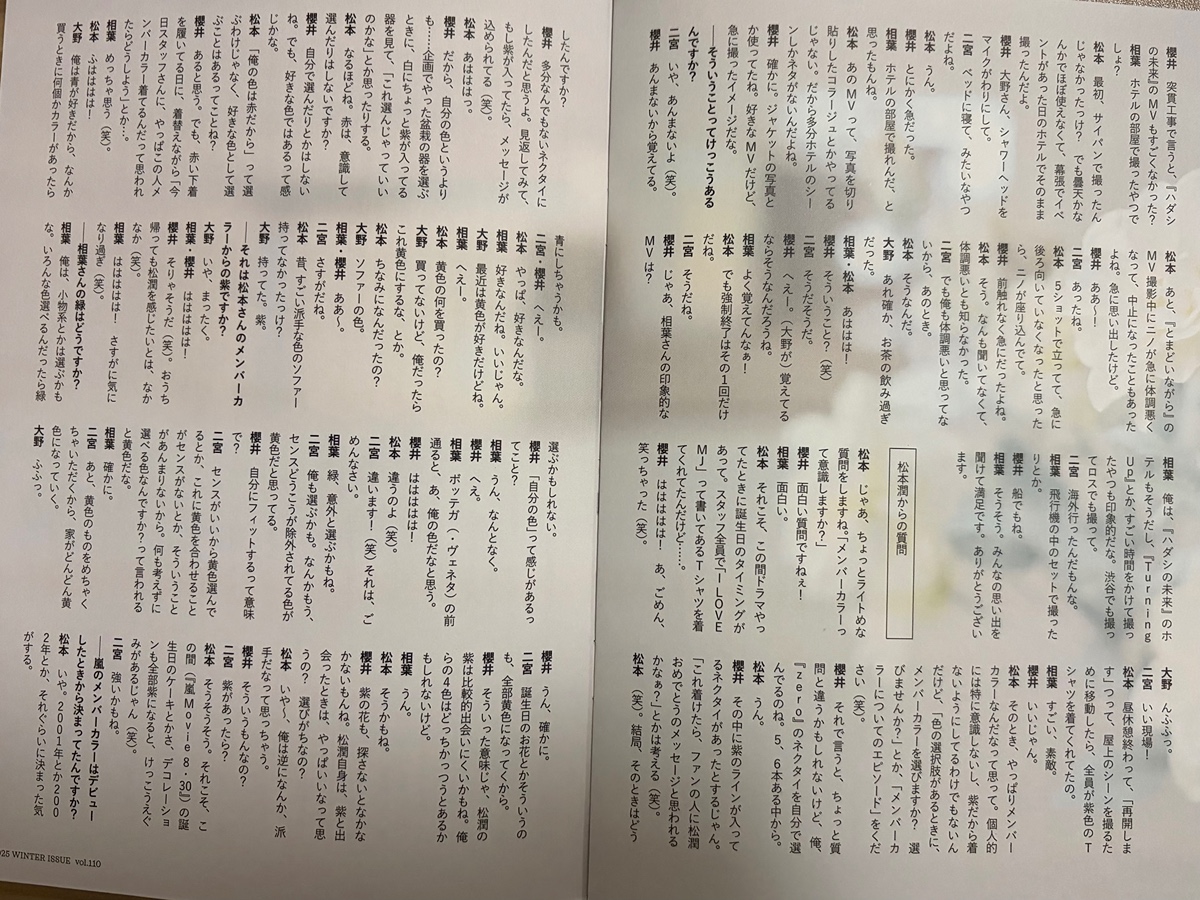 櫻井　突貫工事で言うと、『ハダシ
の未来』のMVもすごくなかった?
相葉　ホテルの部屋で撮ったやつで
しょ?
松本　最初、サイパンで撮ったん
じゃなかったっけ?　でも曇天かな
んかでほぼ使えなくて、幕張でイベ
ントがあった日のホテルでそのまま
撮ったんだよ。
櫻井　大野さん、シャワーヘッドを
マイクがわりにして。
二宮　ベッドに寝て、みたいなやつ
だよね。
松本　うん。
櫻井　とにかく急だった。
相葉　ホテルの部屋で撮れんだ、と
思ったもんね。
松本　あのMVって、写真を切り
貼りしたコラージュとかやってる
じゃない。だから多分ホテルのシー
ンしかネタがないんだよね。
櫻井　確かに。ジャケットの写真と
か使ってたね。好きなMVだけど、
急に撮ったイメージだな。
――そういうことってけっこうある
んですか?
二宮　いや、あんまないよ(笑)。
櫻井　あんまないから覚えてる。
松本　あと、『とまどいながら』の
MV撮影中にニノが急に体調悪く
なって、中止になったこともあった
よね。急に思い出したけど。
櫻井　ああ〜!
二宮　あったね。
松本　5ショットで立ってて、急に
後ろ向いていなくなったと思った
ら、ニノが座り込んでて。
櫻井　前触れなく急にだったよね。
松本　そう。なんも聞いてなくて、
体調悪いとも知らなかった。
二宮　でも俺も体調悪いと思ってな
いから、あのとき。
松本　そうなんだ。
大野　あれ確か、お茶の飲み過ぎ
だった。
相葉・松本　あははは!
櫻井　そういうこと?(笑)
二宮　そうだそうだ。
櫻井　へぇー。(大野が)覚えてる
ならそうなんだろうね。
相葉　よく覚えてんなぁ!
松本　でも強制終了はその1回だけ
だね。
二宮　そうだね。
櫻井　じゃあ、相葉さんの印象的な
MVは?
相葉　俺は、『ハダシの未来』のホ
テルもそうだし、『Turning
Up』とか、すごい時間をかけて撮っ
たやつも印象的だな。渋谷でも撮っ
てロスでも撮って。
二宮　海外行ったんだもんな。
相葉　飛行機の中のセットで撮った
りとか。
櫻井　船でもね。
相葉　そうそう。みんなの思い出を
聞けて満足です。ありがとうござい
ます。
松本潤からの質問
松本　じゃあ、ちょっとライトめな
質問をしますね。「メンバーカラーっ
て意識しますか?」
櫻井　面白い質問ですねぇ!
相葉　面白い。
松本　それこそ、この間ドラマやっ
てたときに誕生日のタイミングが
あって。スタッフ全員で「I LOVE
MJ」って書いてあるTシャツを着
てくれてたんだけど……。
櫻井　はははははは!　あ、ごめん、
笑っちゃった(笑)。
大野　んふふっ。
二宮　いい現場!
松本　昼休憩終わって、「再開しま
す」つって、屋上のシーンを撮るた
めに移動したら、全員が紫色のT
シャツを着てくれてたの。
相葉　すごい、素敵。
櫻井　いいじゃん。
松本　そのとき、やっぱりメンバー
カラーなんだなって思って。個人的
には特に意識しないし、紫だから着
ないようにしてるわけでもないん
だけど、「色の選択肢があるときに、
メンバーカラーを選びますか?　選
びませんか?」とか、「メンバーカ
ラーについてのエピソード」をくだ
さい(笑)。
櫻井　それで言うと、ちょっと質
問と違うかもしれないけど、俺、
『zero』のネクタイを自分で選
んでるのね。5、6本ある中から。
松本　うん。
櫻井　その中に紫のラインが入って
るネクタイがあったとするじゃん。
「これ着けたら、ファンの人に松潤
おめでとうのメッセージと思われる
かなぁ?」とかは考える(笑)。
松本　(笑)。結局、そのときはどう
したんですか?
櫻井　多分なんでもないネクタイに
したんだと思うよ。見返してみて、
もし紫が入ってたら、メッセージが
込められてる(笑)。
松本　あはははっ。
櫻井　だから、自分の色というより
も……企画でやった盆栽の器を選ぶ
ときに、白にちょっと紫が入ってる
器を見て、「これ選んじゃっていい
のかな」とか思ったりする。
松本　なるほどね。赤は、意識して
選んだりはしないですか?
櫻井　自分で選んだりとかはしない
ね。でも、好きな色ではあるって感
じかな。
松本　「俺の色は赤だから」って選
ぶわけじゃなく、好きな色として選
ぶことはあるってことね?
櫻井　あると思う。でも、赤い下着
を履いてる日に、着替えながら「今
日スタッフさんに、やっぱこの人メ
ンバーカラー着てるんだって思われ
たらどうしよう」とか…。
相葉　めっちゃ思う(笑)。
松本　ふはははは!
大野　俺は青が好きだから、なんか
買うときに何個かカラーがあったら
青にしちゃうかも。
二宮・櫻井　へぇー。
松本　やっぱ、好きなんだな。
相葉　好きなんだね。いいじゃん。
大野　最近は黄色が好きだけどね。
相葉　へえー。
松本　黄色の何を買ったの?
大野　買ってないけど、俺だったら
これ黄色にするな、とか。
松本　ちなみになんだったの?
大野　ソファーの色。
相葉・櫻井　ああ〜。
二宮　さすがだね。
松本　昔、すごい派手な色のソファー
持ってなかったっけ?
大野　持ってた。紫。
――それは松本さんのメンバーカ
ラーからの紫ですか?
大野　いや、まったく。
相葉・櫻井　はははははは!
櫻井　そりゃそうだ(笑)。おうち
帰っても松潤を感じたいとは、なか
なか(笑)。
相葉　はははははは!　さすがに気に
なり過ぎ(笑)。
――相葉さんの緑はどうですか?
相葉　俺は、小物系とかは選ぶかも
な。いろんな色選べるんだったら緑
選ぶかもしれない。
櫻井　「自分の色」って感じがあるっ
てこと?
相葉　うん、なんとなく。
櫻井　へぇ。
相葉　ボッテガ(・ヴェネタ)の前
通ると、あ、俺の色だなと思う。
櫻井　はははははは!
松本　違うのよ(笑)。
二宮　違います!(笑)それは、ご
めんなさい。
相葉　緑、意外と選ぶかもね。
二宮　俺も選ぶかも。なんかもう、
センスどうこうが除外されてる色が
黄色だと思ってる。
櫻井　自分にフィットするって意味
で?
二宮　センスがいいから黄色選んで
るとか、これに黄色を合わせること
がセンスがないとか、そういうこと
があんまりないから。何も考えずに
選べる色なんですか?って言われる
と黄色だな。
相葉　確かに。
二宮　あと、黄色のものをめちゃく
ちゃいただくから、家がどんどん黄
色になっていく。
大野　ふふっ。
櫻井　うん、確かに。
二宮　誕生日のお花とかそういうの
も、全部黄色になってくから。
櫻井　そういった意味じゃ、松潤の
紫は比較的出会いにくいかもね。俺
らの4色はどっちかっつうとあるか
もしれないけど。
相葉　うん。
松本　そうかもね。
櫻井　紫の花も、探さないとなかな
かないもんね。松潤自身は、紫と出
会ったときは、やっぱいいなって思
うの?　選びがちなの?
松本　いや〜、俺は逆になんか、派
手だなって思っちゃう。
櫻井　そういうもんなの?
二宮　紫があったら?
松本　そうそうそう。それこそ、こ
の間(『嵐Movie 8・30』)の誕
生日のケーキとかさ、デコレーショ
ンも全部紫になると、けっこうえぐ
みがあるじゃん(笑)。
二宮　強いかもね。
――嵐のメンバーカラーはデビュー
したときから決まってたんですか?
松本　いや。2001年とか200
2年とか、それぐらいに決まった気
がする。
025 WINTER ISSUE vol.110